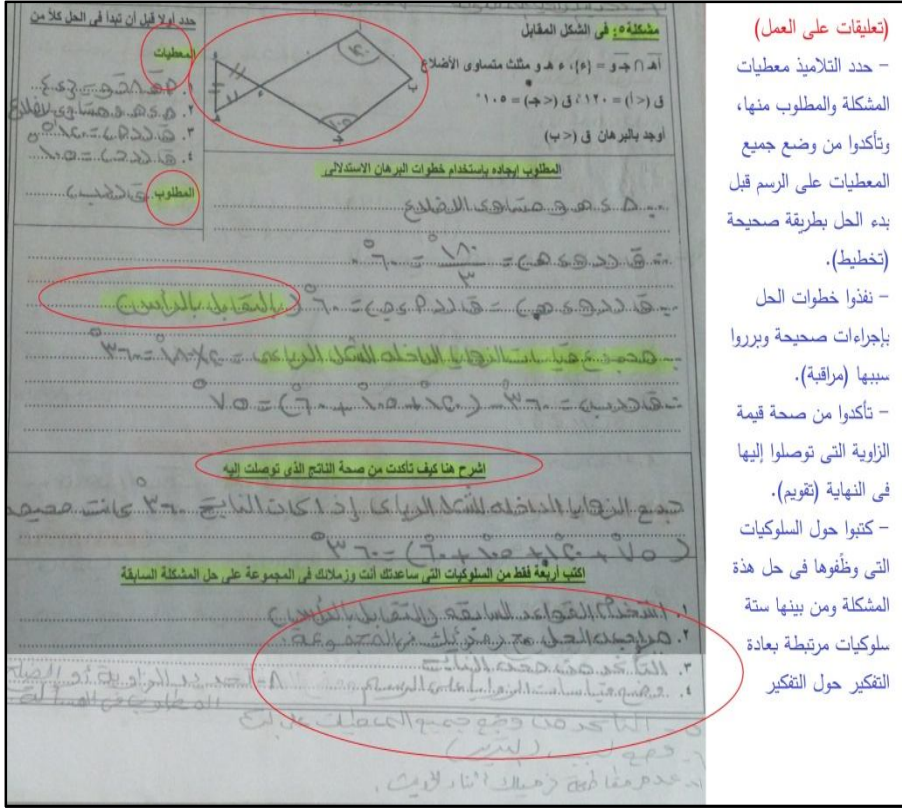 مشكلة٥: فى الشكل المقابل
أهـ ∩ جـ و = {ء}، ء هـ و مثلث متساوى الأضلاع
ق (< أ) = ١٢٠°، ق (< جـ) = ١٠٥°
أوجد بالبرهان ق (< ب)
حدد أولا قبل أن تبدأ فى الحل كلاً من
المعطيات
١.
٢. ء هـ و متساوى الاضلاع
٣.
٤.
المطلوب
المطلوب ايجاده باستخدام خطوات البرهان الاستدلالى
∵ Δ ء هـ و متساوى الاضلاع
= ١٨٠° / ٣ = ٦٠°
= ٦٠° (بالتقابل بالرأس)
∵ مجموع قياسات الزوايا الداخله للشكل الرباعى = ٢ × ١٨٠° = ٣٦٠°
= ٣٦٠° - (١٢٠° + ١٠٥° + ٦٠°) = ٧٥°
اشرح هنا كيف تأكدت من صحة الناتج الذى توصلت إليه
جمع الزوايا الداخله للشكل الرباعى إذا كان الناتج ٣٦٠° كانت صحيحه
(٧٥° + ١٢٠° + ١٠٥° + ٦٠°) = ٣٦٠°
اكتب أربعة فقط من السلوكيات التى ساعدتك أنت وزملائك فى المجموعة على حل المشكلة السابقة
١. استخدام القواعد السابقه (التقابل بالرأس)
٢. مراجعه الحل مع زميلك فى المجموعة
٣. التأكد من صحه الناتج
٤. وضع قياسات الزوايا على الرسم
٥- التأكد من وضع جميع المعطيات على
٦-
٧- عدم مقاطعة زميلك أثناء الحديث.
٨- تحديد الزاوية أو الضلع
المطلوب فى المسألة
(تعليقات على العمل)
- حدد التلاميذ معطيات
المشكلة والمطلوب منها،
وتأكدوا من وضع جميع
المعطيات على الرسم قبل
بدء الحل بطريقة صحيحة
(تخطيط).
- نفذوا خطوات الحل
بإجراءات صحيحة وبرروا
سببها (مراقبة).
- تأكدوا من صحة قيمة
الزاوية التى توصلوا إليها
فى النهاية (تقويم).
- كتبوا حول السلوكيات
التى وظَفوها فى حل هذة
المشكلة ومن بينها ستة
سلوكيات مرتبطة بعادة
التفكير حول التفكير